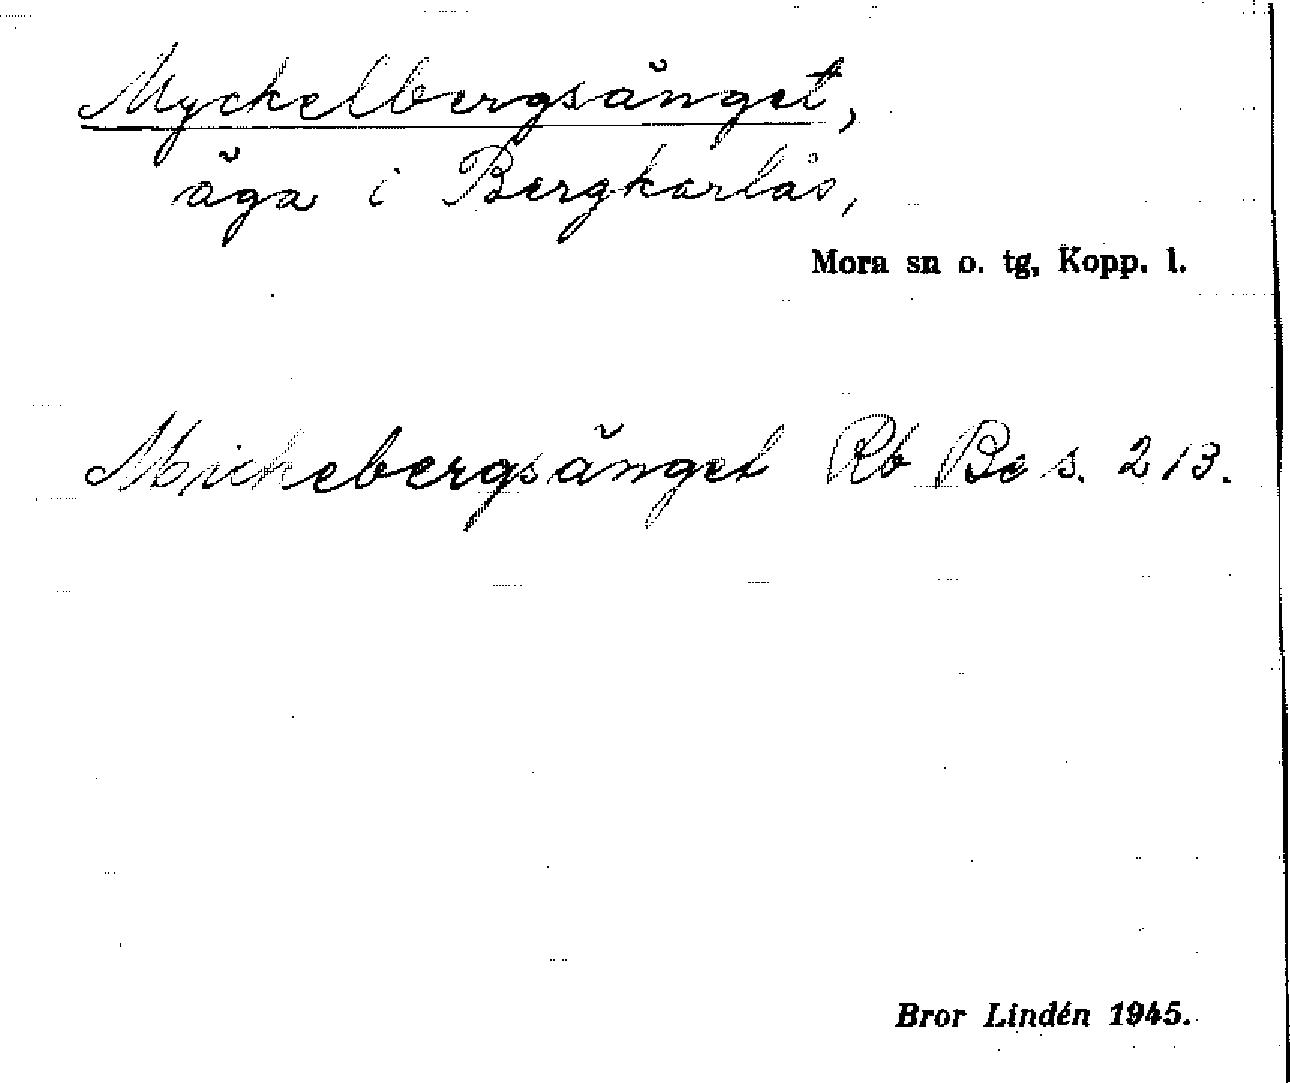 Myckelbergsänget,
äga i Bergkarlås,
Mora sn o. tg, Kopp. l.
Mickebergsänget Rb Be s. 213.
Bror Lindén 1945.